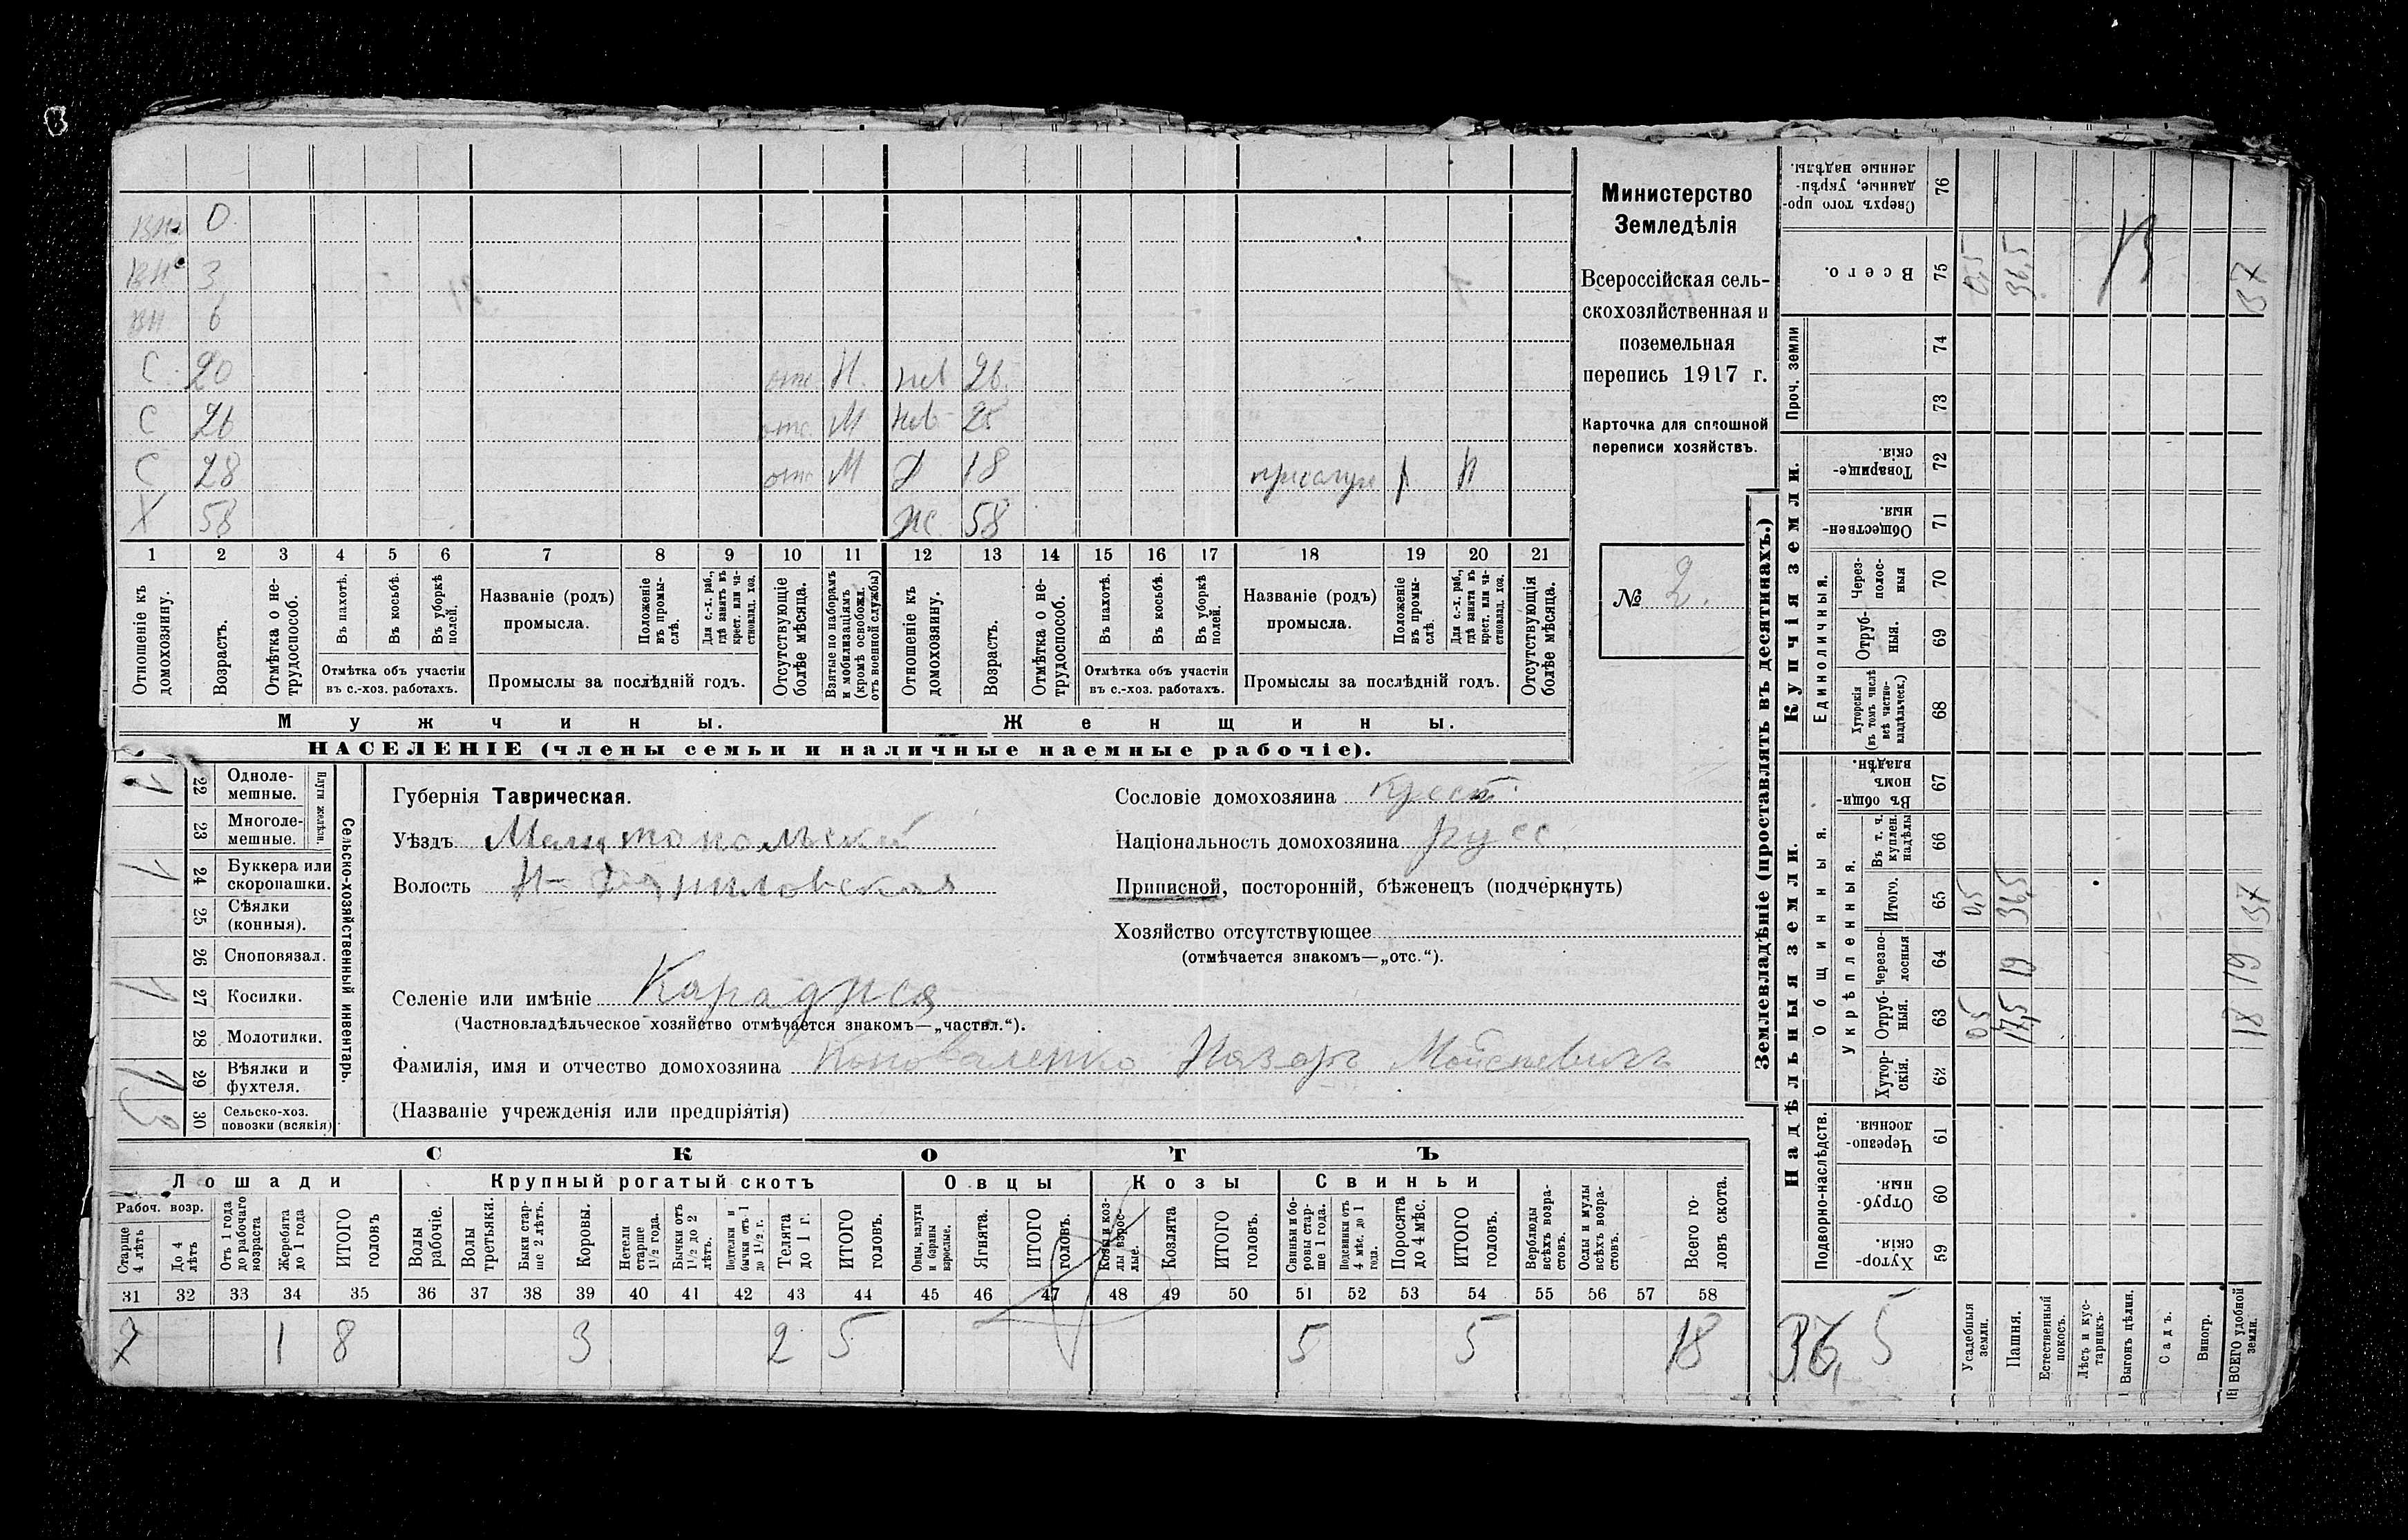 Министерство
Земледѣлія
Всероссійская сель-
скохозяйственная и
поземельная
перепись 1917 г.
Карточка для сплошной
переписи хозяйствъ.
№ 2.
вн. 0
вн. 3
вн. 6
С. 20 отс. Н. нев 26.
С 26 отс. М нев 25
С 28 отс М Д 18 П
Х 58 ж 58
1 2 3 4 5 6 7 8 9 10 11 12 13 14 15 16 17 18 19 20 21
Отношеніе къ домохозяину.
Возрастъ.
Отмѣтка о не-трудоспособ.
Въ пахотѣ.
Въ косьбѣ.
Въ уборкѣ полей.
Отмѣтка объ участіи
въ с.-хоз. работахъ.
Названіе (родъ)
промысла.
Положеніе въ промы-слѣ.
Для с.-х. раб., гдѣ занятъ въ крест. или ча-стновлад. хоз.
Промыслы за послѣдній годъ.
Отсутствующіе болѣе мѣсяца.
Взятые по наборамъ и мобилизаціямъ (кромѣ освобожд. отъ военной службы)
Отношеніе къ домохозяину.
Возрастъ.
Отмѣтка о не-трудоспособ.
Въ пахотѣ.
Въ косьбѣ.
Въ уборкѣ полей.
Отмѣтка объ участіи
въ с.-хоз. работахъ.
Названіе (родъ)
промысла.
Положеніе въ промы-слѣ.
Для с.-х. раб., гдѣ занята въ крест. или ча-стновлад. хоз.
Промыслы за послѣдній годъ.
Отсутствующія болѣе мѣсяца.
Мужчины.
Женщины.
НАСЕЛЕНІЕ (члены семьи и наличные наемные рабочіе).
Сельско-хозяйственный инвентарь.
Плуги желѣзн.
22 Одноле-мешные. 1
23 Многоле-мешные.
24 Буккера или скоропашки. 1
25 Сѣялки (конныя).
26 Сноповязал.
27 Косилки. 1
28 Молотилки.
29 Вѣялки и фухтеля. 1
30 Сельско-хоз. повозки (всякія) 3
Губернія Таврическая.
Уѣздъ Мелитопольскій
Волость
Селеніе или имѣніе
(Частновладѣльческое хозяйство отмѣчается знакомъ—„частвл.“).
Сословіе домохозяина крест.
Національность домохозяина русс.
Приписной, посторонній, бѣженецъ (подчеркнуть)
Хозяйство отсутствующее
(отмѣчается знакомъ—„отс.“).
Фамилія, имя и отчество домохозяина Коноваленко Назаръ Моисеевичъ
(Названіе учрежденія или предпріятія)
СКОТЪ
Лошади Крупный рогатый скотъ Овцы Козы Свиньи
Рабоч. возр.
Старше 4 лѣтъ
До 4 лѣтъ
Отъ 1 года до рабочаго возраста
Жеребята до 1 года
ИТОГО головъ
Волы рабочіе.
Волы третьяки.
Быки стар-ше 2 лѣтъ.
Коровы.
Нетели старше 1½ года.
Бычки отъ 1½ до 2 лѣтъ.
Подтелки и бычки отъ 1 до 1½ г.
Телята до 1 г.
ИТОГО головъ.
Овцы, валухи и бараны взрослые.
Ягнята.
ИТОГО головъ.
Козы и коз-лы взрос-лые.
Козлята
ИТОГО головъ.
Свиньи и бо-ровы стар-ше 1 года.
Подсвинки отъ 4 мѣс. до 1 года.
Поросята до 4 мѣс.
ИТОГО головъ.
Верблюды всѣхъ возра-стовъ.
Ослы и мулы всѣхъ возра-стовъ.
Всего го-ловъ скота.
31 32 33 34 35 36 37 38 39 40 41 42 43 44 45 46 47 48 49 50 51 52 53 54 55 56 57 58
7 1 8 3 2 5 5 5 18
Землевладѣніе (проставлять въ десятинахъ.)
Надѣльныя земли.
Купчія земли.
Проч. земли
Подворно-наслѣдств.
Общинныя.
Укрѣпленныя.
Единоличныя.
Хутор-скія. 59
Отруб-ныя. 60
Черезпо-лосныя. 61
Хутор-скія. 62
Отруб-ныя. 63 0,5 17,5 18
Черезпо-лосныя 64 19 19
Итого. 65 0,5 36,5 37
Въ т. ч. куплен. надѣлы 66
Въ общин-номъ владѣн. 67
Хуторскія (въ томъ числѣ всѣ частно-владѣльческ.) 68
Отруб-ныя. 69
Через-полос-ныя 70
Обществен-ныя 71
Товарище-скія. 72
73
74
Всего. 75 0,5 36,5 37
Сверхъ того про-данные, укрѣп-ленные надѣлы. 76
36,5
Усадебныя земли.
Пашня.
Естественный покосъ.
Лѣсъ и кус-тарникъ.
Выгонъ цѣлин.
Садъ.
Виногр.
ВСЕГО удобной земли.